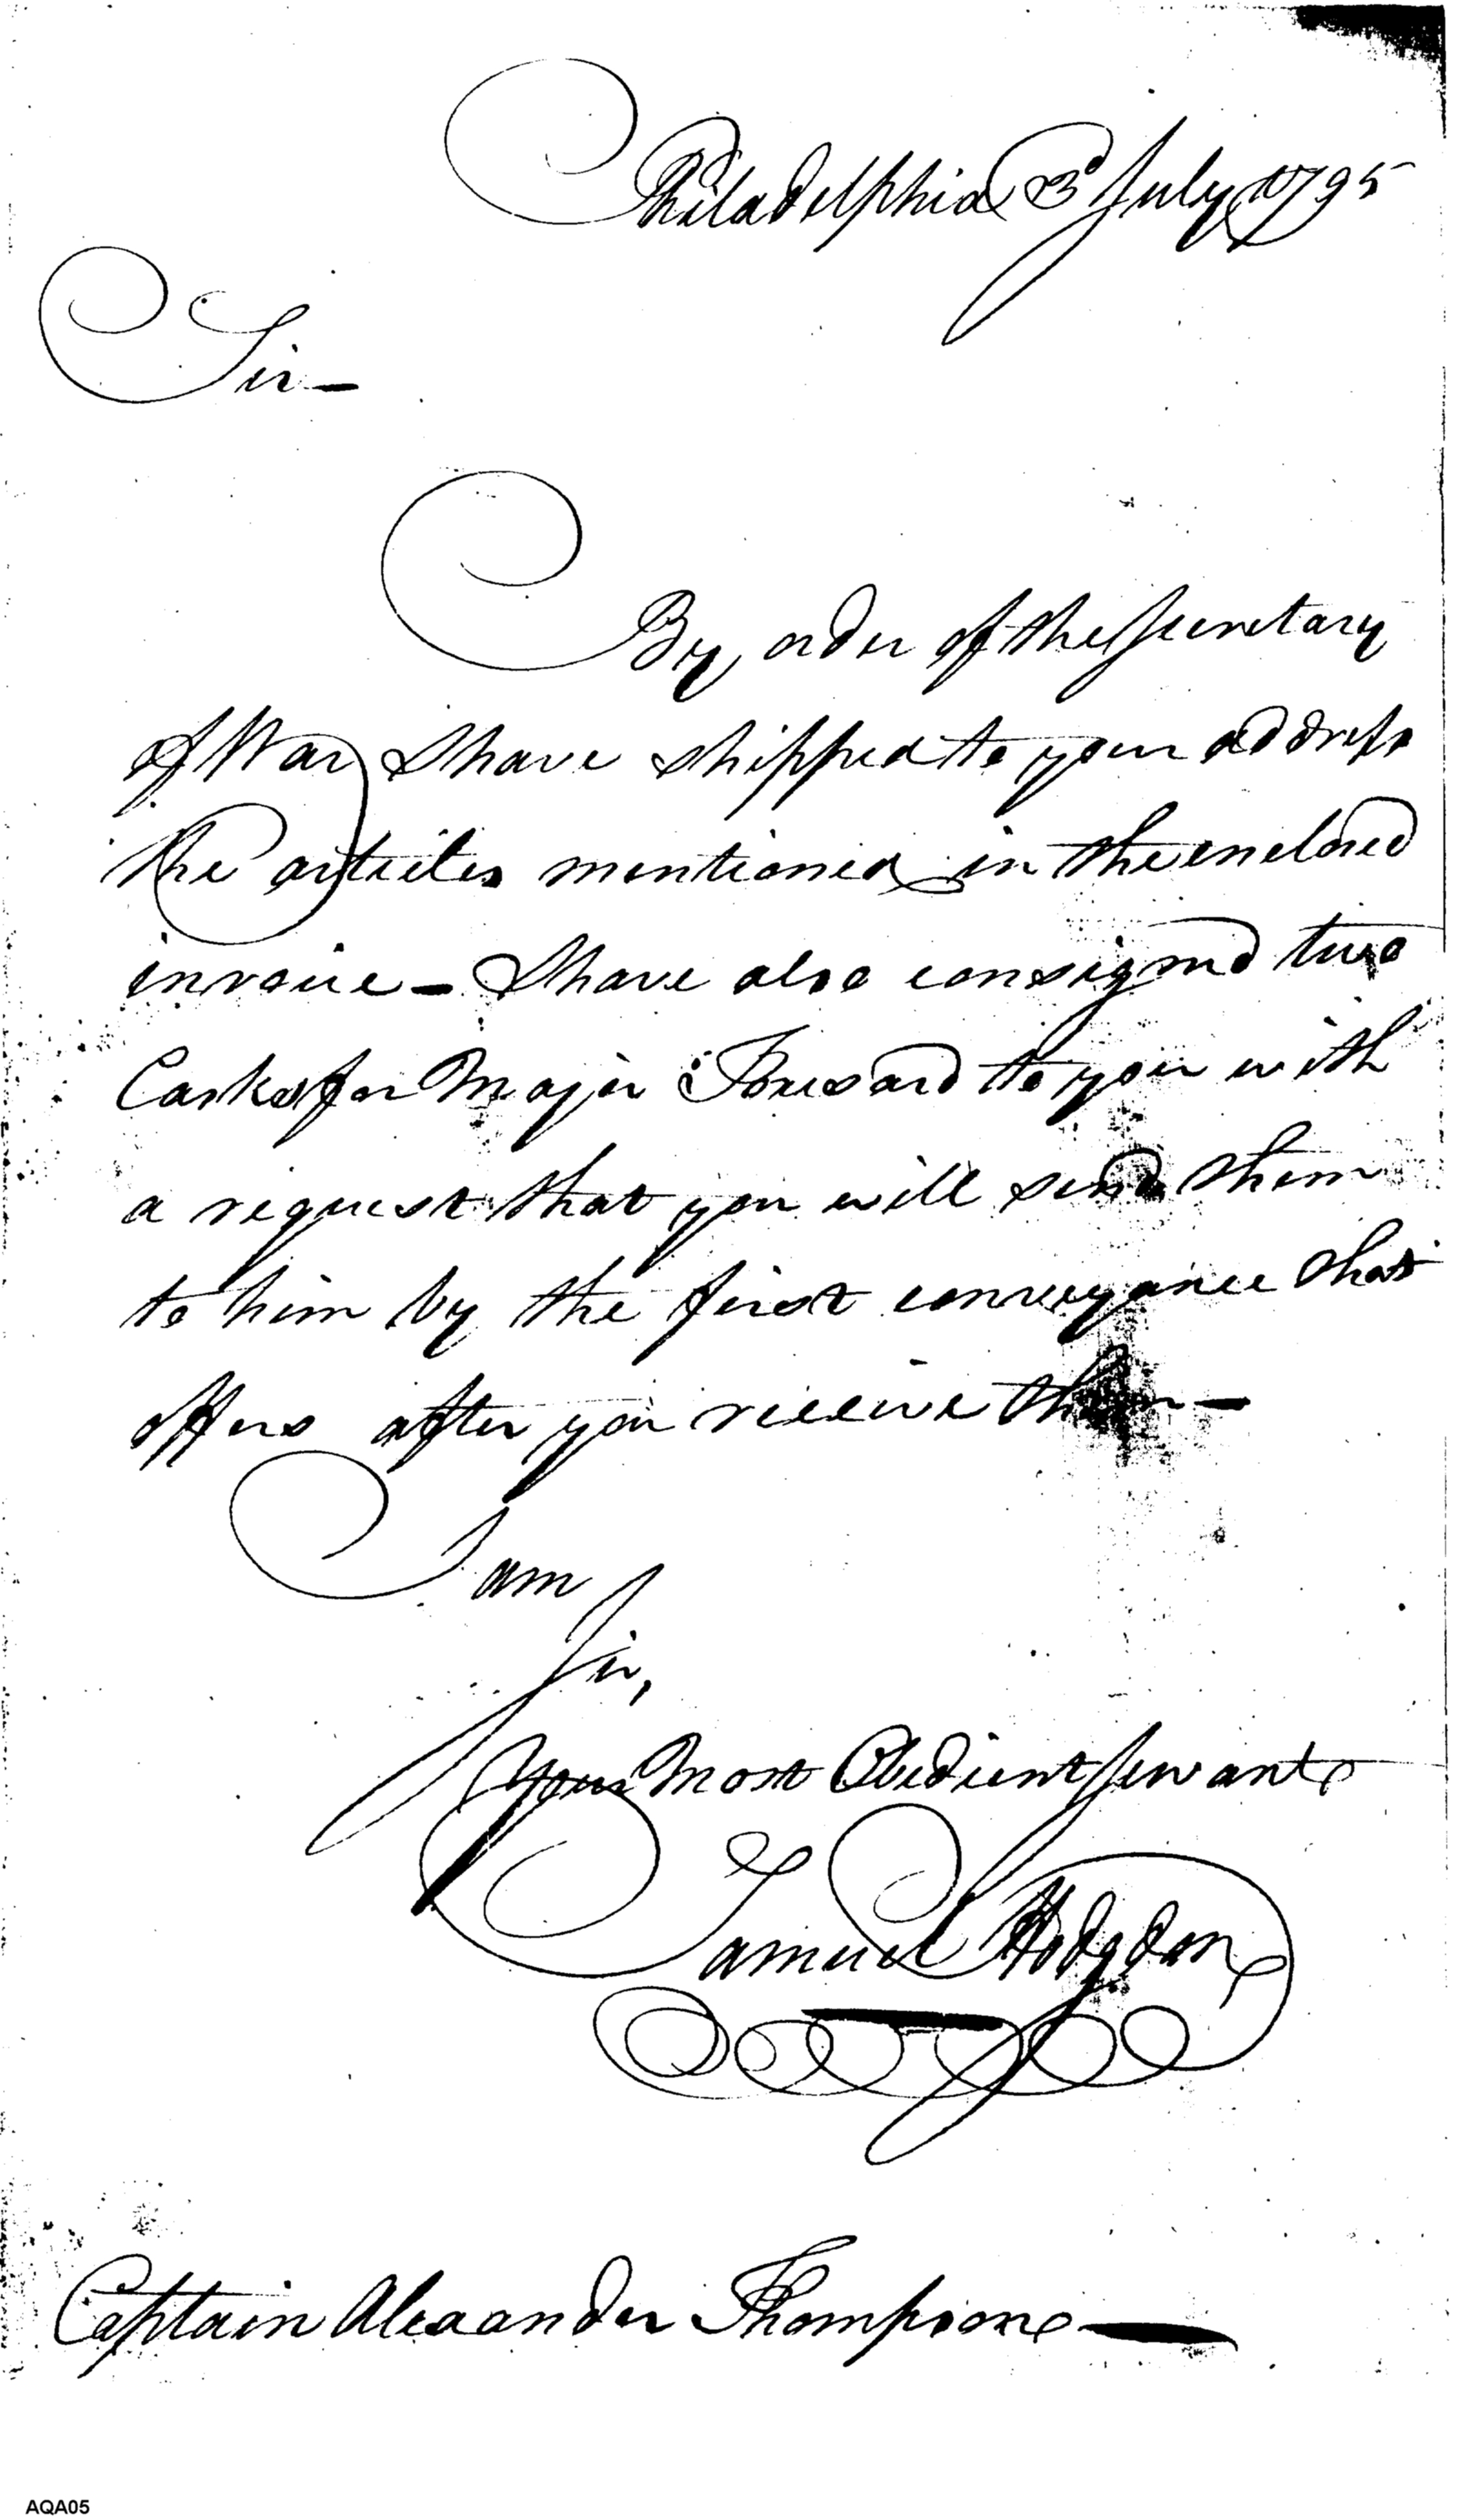 Philadelphia 23d July 1795
Sir —
By order of the Secretary
of War I have shipped to your address
the articles mentioned in the enclosed
invoice — I have also consigned two
Casks for Major to you with
a request that you will send them
to him by the first conveyance that
offers after you receive them —
I am
Sir,
Your Most Obedient Servant
Samuel Hodgdon
Captain Alexander Thompson —
AQA05